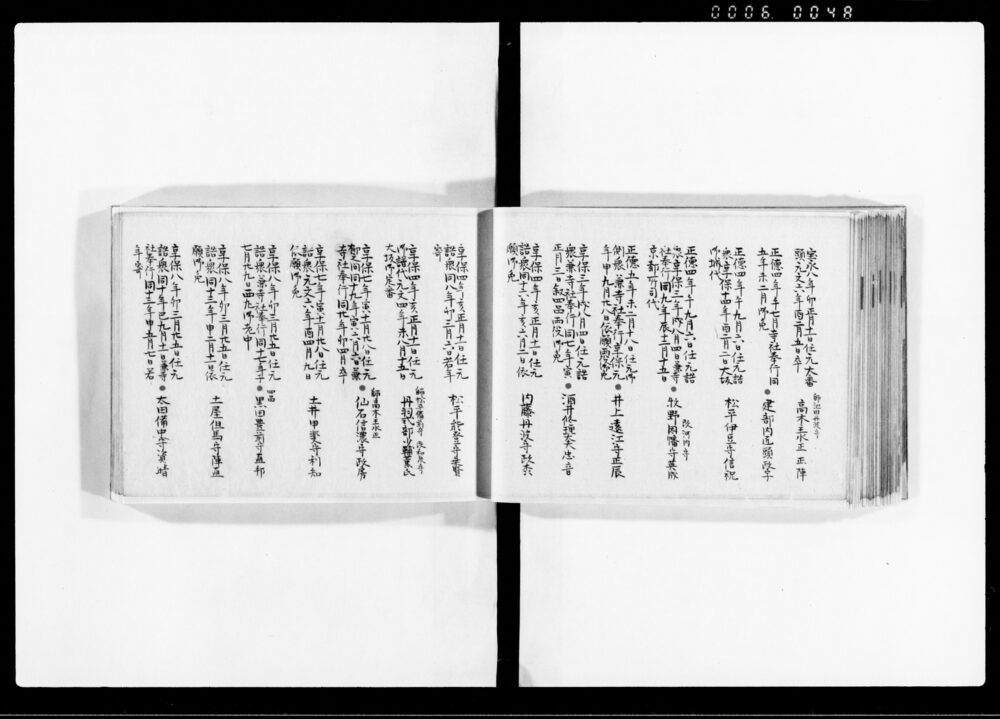 0006 0048
宝永八年卯正月十一日任元大番
頭元文六年酉二月五日卒
師池田丹波守
高木主水正正陣
正徳四年午七月寺社奉行同
五年未二月御免
建部内匠頭政宇
正徳四年午九月六日任元詰
衆享保十四年酉二月二日大坂
御城代
松平伊豆守信祝
正徳四年午九月六日任元詰
衆享保三年戌八月四日兼寺
社奉行同九年辰十二月十五日
京都所司代
改河内守
牧野因幡守英成
正徳五年未二月十八日任元御
側衆兼寺社奉行享保元
年申九月廿八日依願両役御免
井上遠江守正辰
享保三年戌八月四日任元詰
衆兼寺社奉行同七年寅
正月三日叙四品両役御免
酒井修理大夫忠音
享保四年亥正月十一日任元
詰衆同十八年丑六月二日依
願御免
内藤丹波守政森
享保四年亥正月十一日任元
詰衆同八年卯三月六日若年
寄
松平能登守乗賢
享保四年亥正月十一日任元
御譜代元文四年未八月十五日
大坂御定番
師松平備前守 改和泉守
丹羽式部少輔薫氏
享保七年寅十一月廿八日任元
寺社奉行同廿年卯四月卒
師高木主水正
仙石信濃守政房
享保七年寅十一月廿八日任元
詰衆元文六年酉四月九日
依願御免
土井甲斐守利知
享保八年卯三月廿五日任元
詰衆兼寺社奉行同十七年子
七月廿九日西丸御老中
四品
黒田豊前守直邦
享保八年卯三月廿五日任元
詰衆同十三年申二月十一日依
願御免
土屋但馬守陳直
享保八年卯三月廿五日任元
詰衆同十年巳九月十一日兼寺
社奉行同十三年申五月七日若
年寄
太田備中守資晴